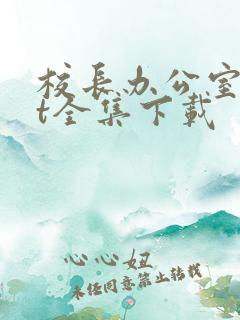 校长办公室
t全集下载
心心妞
未经同意禁止转载